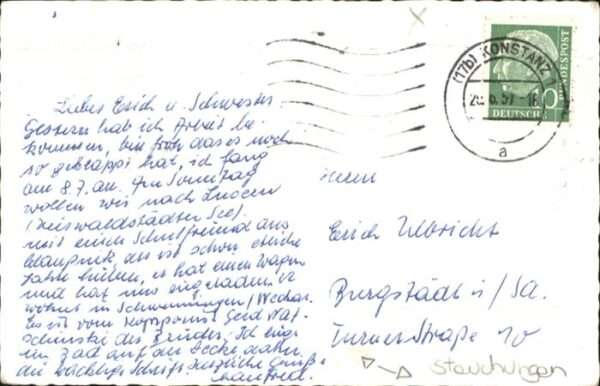 (17b) KONSTANZ 1
a
DEUTSCHE BUNDESPOST
10
Liebes Erich u. Schwester.
Gestern hab ich Arbeit be-
kommen, bin froh das es noch
so geklappt hat, ich fang
am 8.7. an. Am Sonntag
wollen wir nach Luzern
(Vierwaldstädter See).
mit einem Schulfreund aus
der ist schon etliche
Jahre hüben, er hat einen Wagen
und hat uns eingeladen, er
wohnt in Schwenningen/Neckar.
Es ist vom Gerd
der Bruder. Ich liege
im Bad auf der Decke, daher
die wacklige Schrift. Herzliche Grüße
Manfred.
Herrn
Erich Ulbricht
Burgstädt i/Sa.
Turner Straße 10
Stauchungen